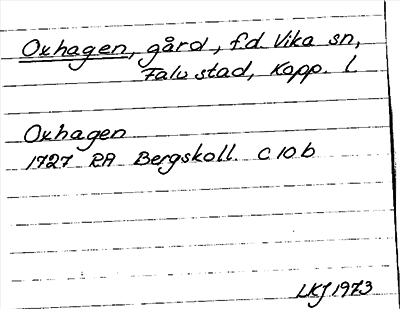 Oxhagen, gård, f.d. Vika sn,
Falu stad, Kopp. l.
Oxhagen
1727 RA Bergskoll. C 10 b
LKJ 1973